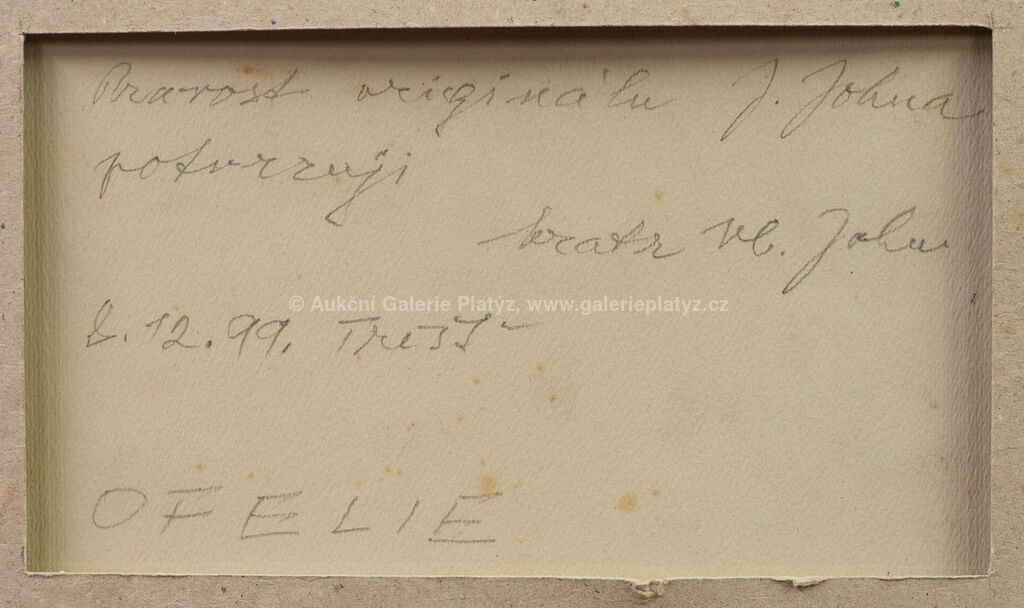 Pravost originálu J. Johna
potvrzuji
bratr Vl. John
© Aukční Galerie Platýz, www.galerieplatyz.cz
8.12.99. Třešť
OFELIE